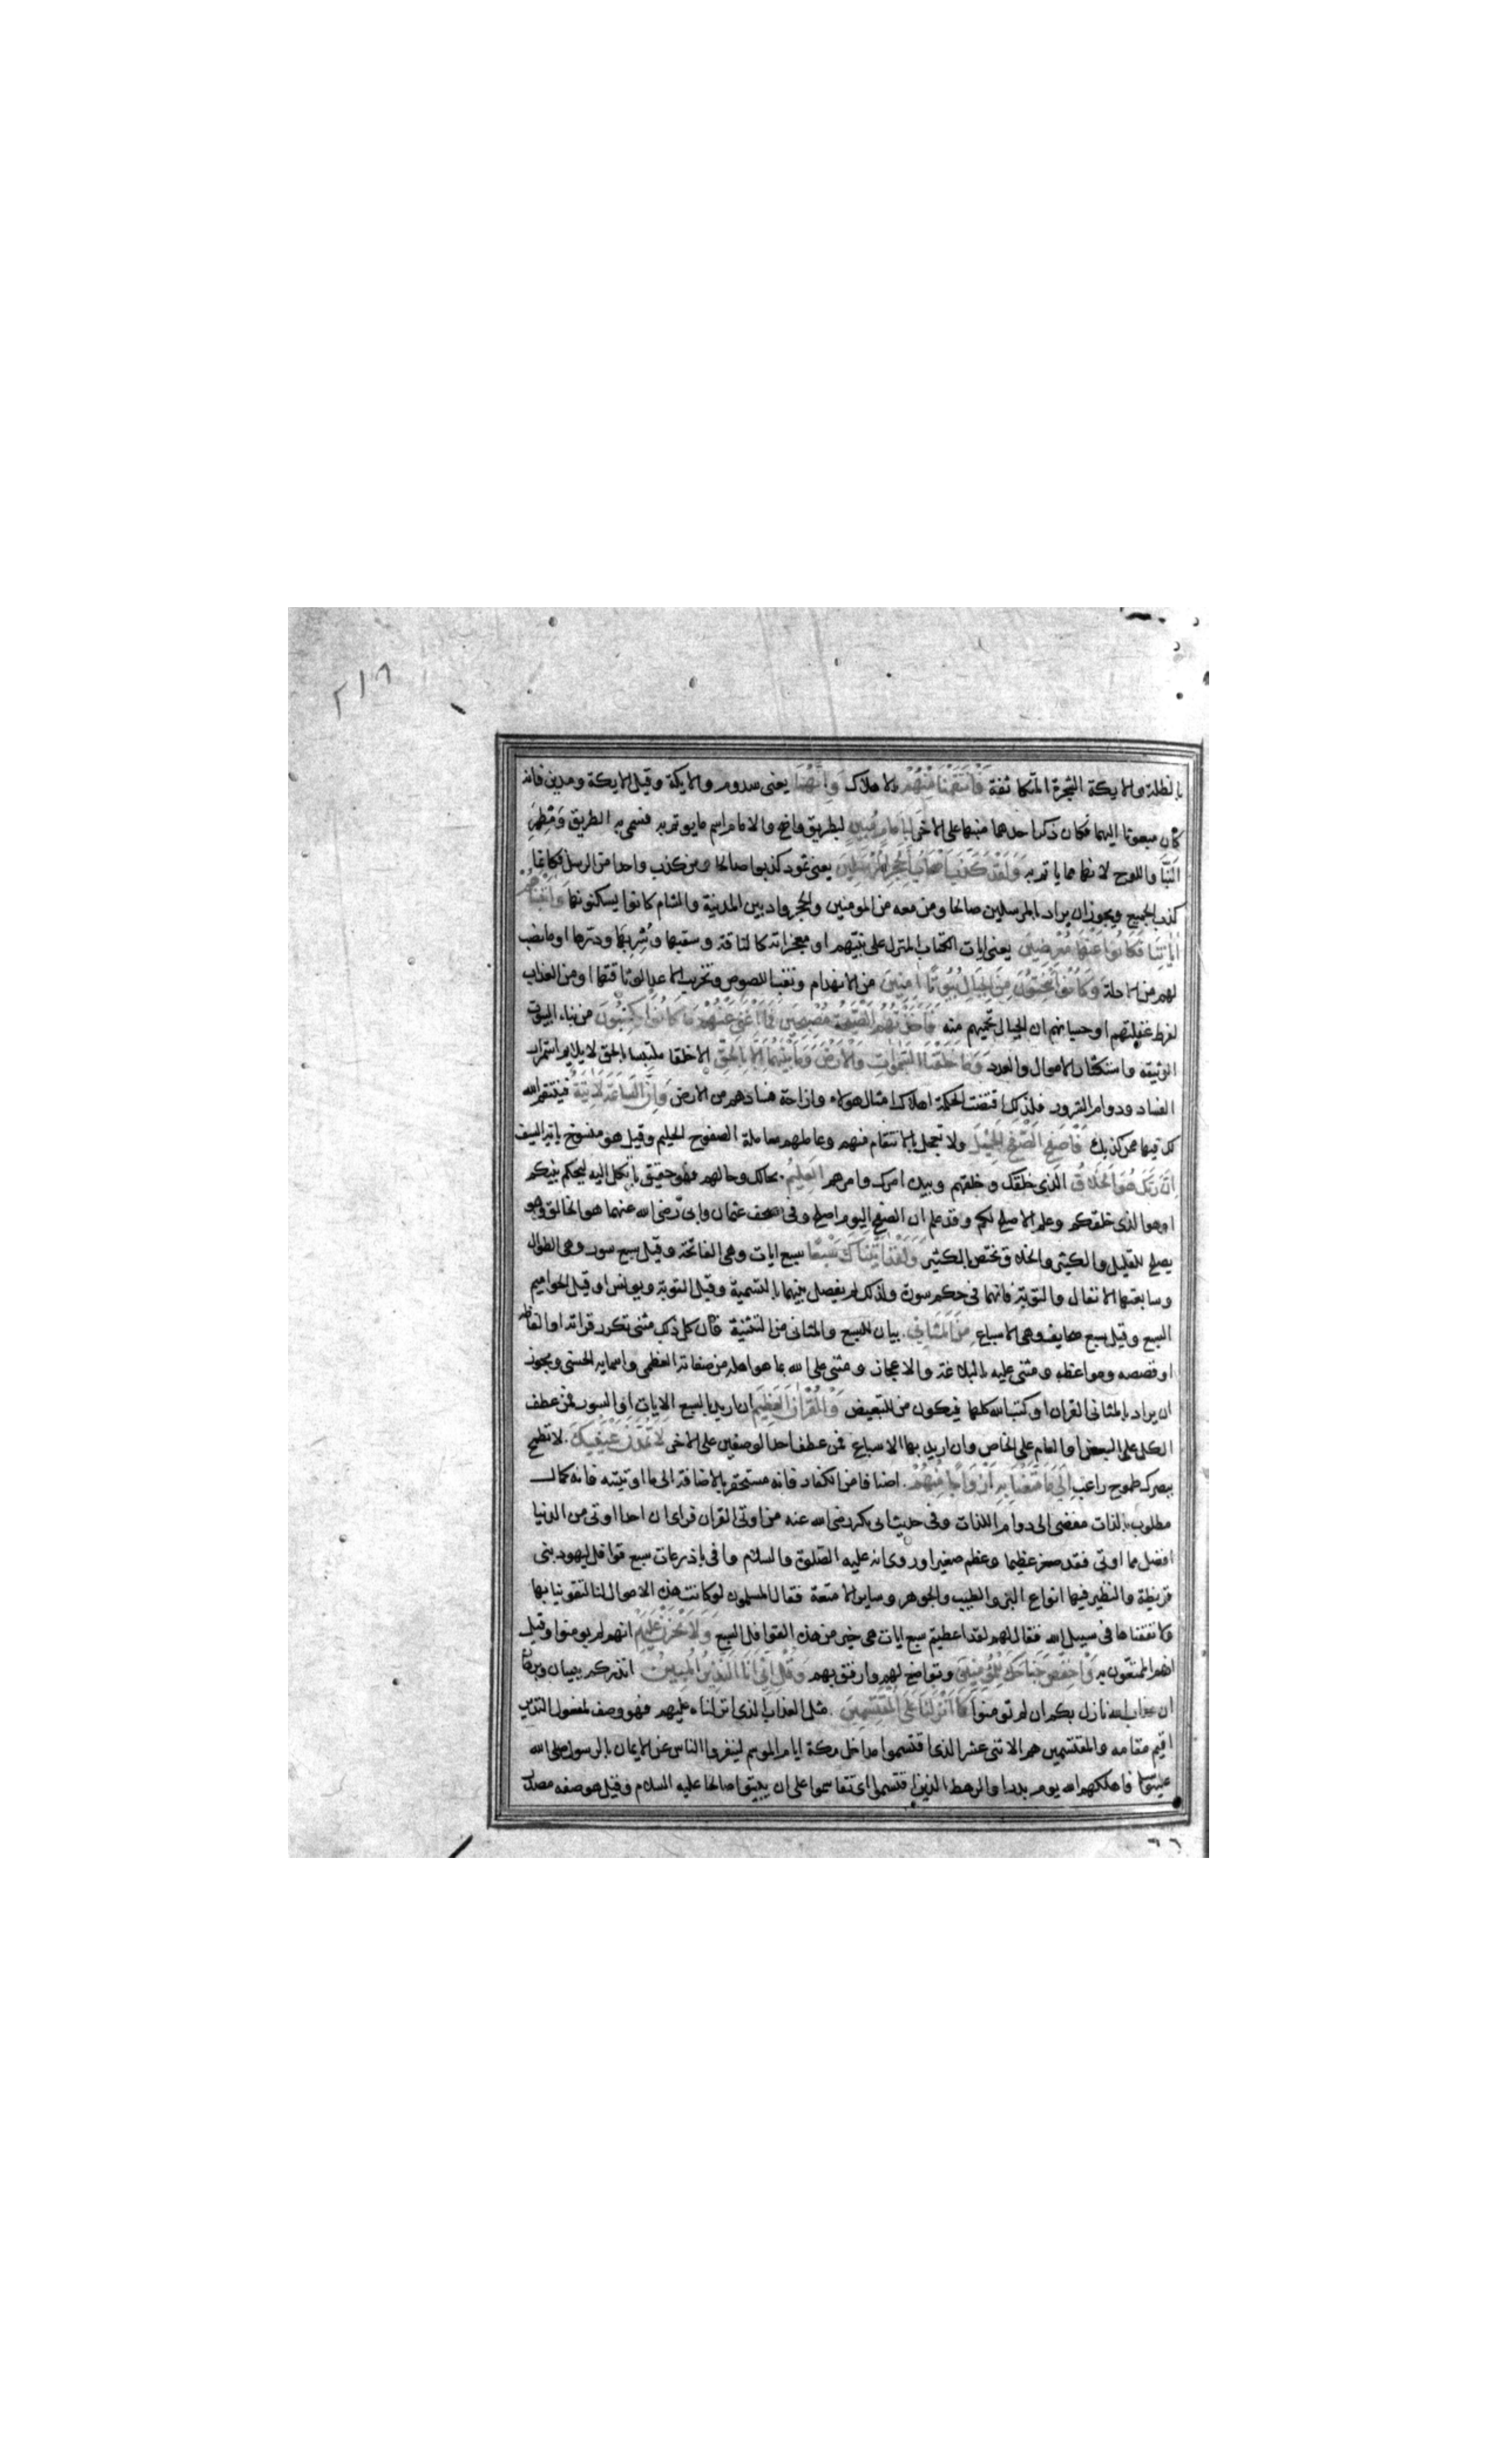 ٢١٨
بالظلة والايكة الشجرة المتكاثفة فَانْتَقَمْنَا مِنْهُمْ بالاهلاك وَاِنَّهُمَا يعنى سدوم والايكة وقيل الايكة ومدين فانه
كان مبعوثا اليهما فكان ذكر احدهما منبها على الاخرى لَبِاِمَامٍ مُبِينٍ لبطريق واضح والامام اسم ما يوتم به فسمى به الطريق ومطمر
البنّا واللوح لانهما مما ياتم به وَلَقَدْ كَذَّبَ اَصْحَابُ الْحِجْرِ الْمُرْسَلِينَ يعنى ثمود كذبوا صالحا ومن كذب واحدا من الرسل فكانما
كذب الجميع ويجوز ان يراد بالمرسلين صالحا ومن معه من المومنين والحجر واد بين المدينة والشام كانوا يسكنونها وَاٰتَيْنَاهُمْ
اٰيَاتِنَا فَكَانُوا عَنْهَا مُعْرِضِينَ يعنى ايات الكتاب المنزل على نبيهم او معجزاته كالناقة وسقيها وشربها ودرها او ما نصب
لهم من الادلة وَكَانُوا يَنْحِتُونَ مِنَ الْجِبَالِ بُيُوتًا اٰمِنِينَ من الانهدام ونقب اللصوص وتخريب الاعدا لوثاقتها او من العذاب
لفرط غفلتهم او حسبانهم ان الجبال تحميهم منه فَاَخَذَتْهُمُ الصَّيْحَةُ مُصْبِحِينَ فَمَا اَغْنٰى عَنْهُمْ مَا كَانُوا يَكْسِبُونَ من بناء البيوت
الوثيقه واستكثار الاموال والعدد وَمَا خَلَقْنَا السَّمٰوَاتِ وَالْاَرْضَ وَمَا بَيْنَهُمَا اِلَّا بِالْحَقِّ الا خلقا ملتبسا بالحق لا يلايم استمرار
الفساد ودوام الشرور فلذلك اقتضت الحكمة اهلاك امثال هولاء وازاحة فسادهم من الارض وَاِنَّ السَّاعَةَ لَاٰتِيَةٌ فينتقم الله
لك فيها ممن كذبك فَاصْفَحِ الصَّفْحَ الْجَمِيلَ ولا تعجل بالانتقام منهم وعاملهم معاملة الصفوح الحليم وقيل هو منسوخ باية السيف
اِنَّ رَبَّكَ هُوَ الْخَلَّاقُ الذى خلقك وخلقهم وبيده امرك وامرهم الْعَلِيمُ بحالك وحالهم فهو حقيق بان تكل اليه ليحكم بينكم
او هو الذى خلقكم وعلم الاصلح لكم وقد علم ان الصفح اليوم اصلح وفى مصحف عثمان وابىّ رضى الله عنهما هو الخالق وهو
يصلح للقليل والكثير والخلاق يختص بالكثير وَلَقَدْ اٰتَيْنَاكَ سَبْعًا سبع ايات وهى الفاتحة وقيل سبع سور وهى الطوال
وسابعتها الانفال والتوبة فانهما فى حكم سورة ولذلك لم يفصل بينهما بالتسمية وقيل التوبة ويونس او قيل الحواميم
السبع وقيل سبع صحايف وهى الاسباع مِنَ الْمَثَانِي بيان للسبع والمثانى من التثنية فان كل ذلك مثنى تكرر قراته او الفاظه
او قصصه ومواعظه ومثنى عليه بالبلاغة والاعجاز ومثنى على الله بما هو اهله من صفاته العظمى واسمايه الحسنى ويجوز
ان يراد بالمثانى القران او كتب الله كلها فيكون من للتبعيض وَالْقُرْاٰنَ الْعَظِيمَ ان اريد بالسبع الايات او السور فمن عطف
الكل على البعض او العام على الخاص وان اريد بها الاسباع فمن عطف احد الوصفين على الاخر لَا تَمُدَّنَّ عَيْنَيْكَ لا تطمح
ببصرك طموح راغب اِلٰى مَا مَتَّعْنَا بِهِ اَزْوَاجًا مِنْهُمْ اصنافا من الكفار فانه مستحقر بالاضافة الى ما اوتيته فانه كمال
مطلوب بالذات مفضى الى دوام اللذات وفى حديث ابى بكر رضى الله عنه من اوتى القران فراى ان احدا اوتى من الدنيا
افضل مما اوتى فقد صغر عظيما وعظم صغيرا وروى انه عليه الصلوة والسلام وافى باذرعات سبع قوافل ليهود بنى
قريظة والنظير فيها انواع البز والطيب والجوهر وساير الامتعة فقال المسلمون لو كانت هذه الاموال لنا لتقوينا بها
وانفقناها فى سبيل الله فقال لهم لقد اعطيتم سبع ايات هى خير من هذه القوافل السبع وَلَا تَحْزَنْ عَلَيْهِمْ انهم لم يومنوا وقيل
انهم المتمتعون به وَاخْفِضْ جَنَاحَكَ لِلْمُؤْمِنِينَ وتواضع لهم وارفق بهم وَقُلْ اِنِّي اَنَا النَّذِيرُ الْمُبِينُ انذركم ببيان وبرهان
ان عذاب الله نازل بكم ان لم تومنوا كَمَا اَنْزَلْنَا عَلَى الْمُقْتَسِمِينَ مثل العذاب الذى انزلناه عليهم فهو وصف لمفعول النذير
اقيم مقامه والمقتسمين هم الاثنى عشر الذى اقتسموا مداخل مكة ايام الموسم لينفروا الناس عن الايمان بالرسول صلى الله
فاهلكهم الله يوم بدر او الرهط الذين اقتسموا اى تقاسموا على ان يبيتوا صالحا عليه السلام وقيل هو صفه مصدر